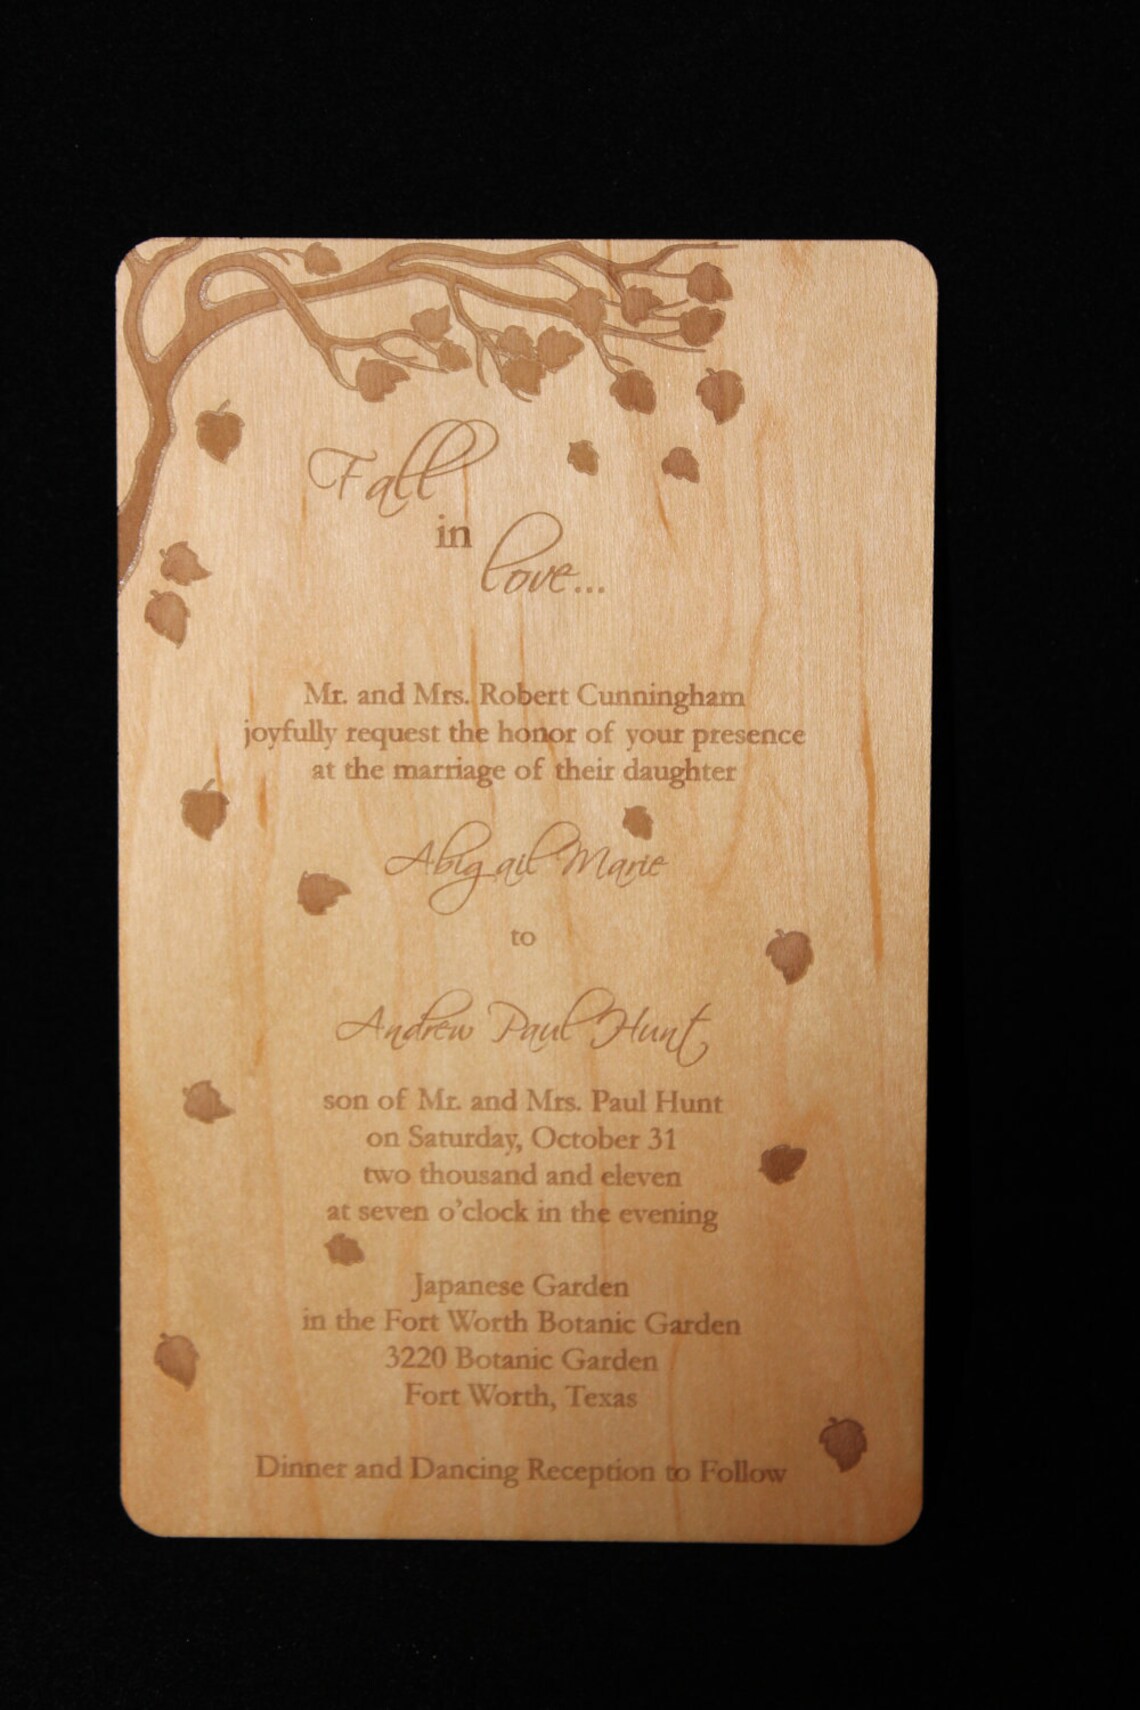 Fall
in
love...
Mr. and Mrs. Robert Cunningham
joyfully request the honor of your presence
at the marriage of their daughter
Abigail Marie
to
Andrew Paul Hunt
son of Mr. and Mrs. Paul Hunt
on Saturday, October 31
two thousand and eleven
at seven o'clock in the evening
Japanese Garden
in the Fort Worth Botanic Garden
3220 Botanic Garden
Fort Worth, Texas
Dinner and Dancing Reception to Follow